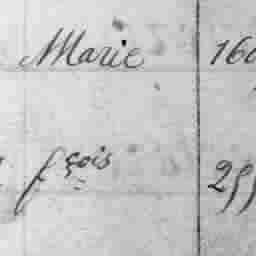 Marie 160
fçois 255